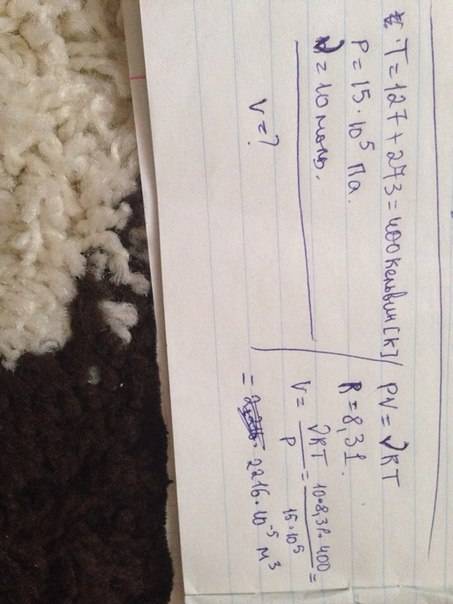 T = 127 + 273 = 400 кельвин [К]
P = 15 · 10⁵ Па.
ν = 10 моль.
V = ?
PV = νRT
R = 8,31.
V = νRT / P = 10·8,31·400 / 15·10⁵ =
= 2216·10⁻⁵ м³